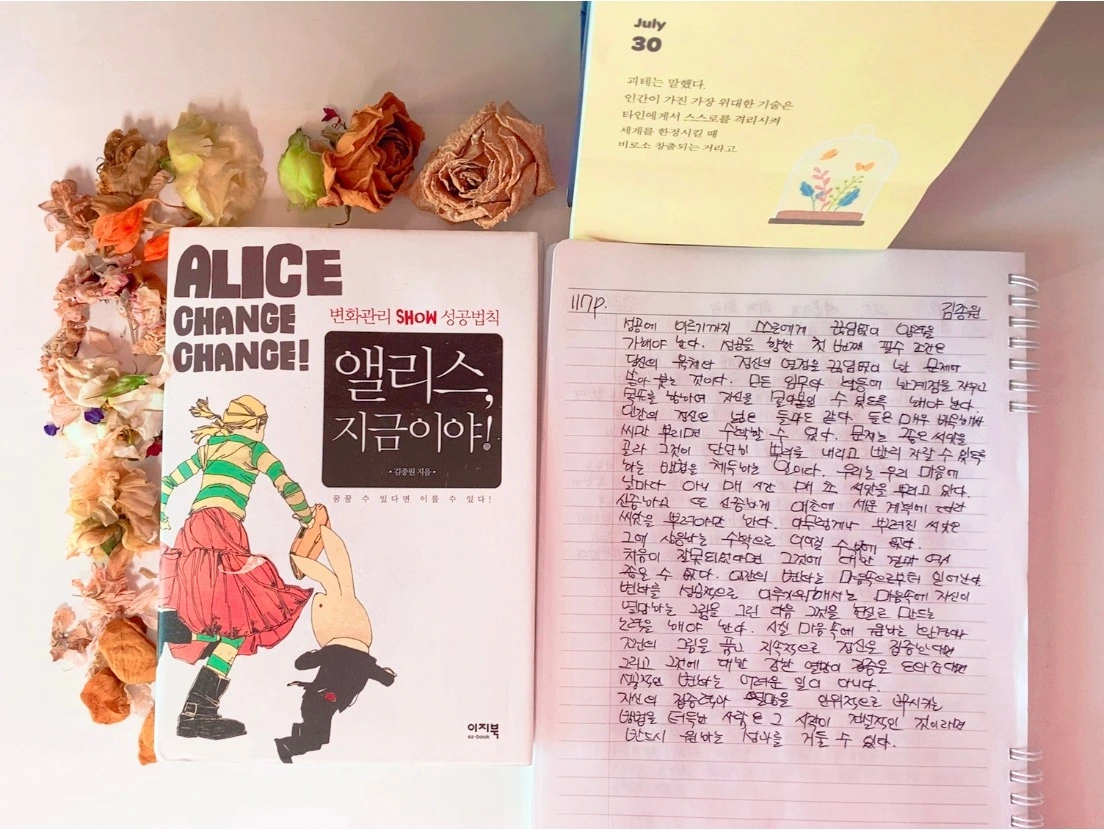 July
30
괴테는 말했다.
인간이 가진 가장 위대한 기술은
타인에게서 스스로를 격리시켜
세계를 한정시킬 때
비로소 창출되는 거라고
ALICE
CHANGE
CHANGE!
변화관리 SHOW 성공법칙
앨리스,
지금이야!
·김종원 지음·
꿈꿀 수 있다면 이룰 수 있다!
이지북
ez-book
117p.
김종원
성공에 이르기까지 스스로에게 끊임없이 압력을
가해야 한다. 성공을 향한 첫 번째 필수 조건은
당신의 육체와 정신의 열정을 끊임없이 한 문제에
쏟아 붓는 것이다. 모든 임무와 행동에 한계점을 지우고
목표를 향하여 자신을 몰아붙일 수 있도록 해야 한다.
인간의 정신은 넓은 들과도 같다. 들은 매우 비옥해서
씨만 뿌리면 수확할 수 있다. 문제는 좋은 씨앗을
골라 그것이 단단히 뿌리를 내리고 빨리 자랄 수 있도록
하는 방법을 체득하는 일이다. 우리는 우리 마음에
날마다 아니 매 시간 매 초 씨앗을 뿌리고 있다.
신중하고 또 신중하게 애초에 세운 계획에 따라
씨앗을 뿌려야만 한다. 아무렇게나 뿌려진 씨앗은
그에 상응하는 수확으로 이어질 수밖에 없다.
처음이 잘못되었다면 그것에 대한 결과 역시
좋을 수 없다. 인간의 변화는 마음속으로부터 일어난다
변화를 성공적으로 이루기 위해서는 마음속에 자신이
열망하는 그림을 그린 다음 그것을 현실로 만드는
노력을 해야 한다. 사실 마음속에 원하는 환경과
조건의 그림을 품고 지속적으로 정신을 집중한다면
그리고 그것에 대한 강한 열망이 집중을 도와준다면
실질적인 변화는 어려운 일이 아니다.
자신의 집중력과 열망을 인위적으로 변화시키는
방법을 터득한 사람은 그 시작이 건설적인 것이라면
반드시 원하는 성과를 거둘 수 있다.